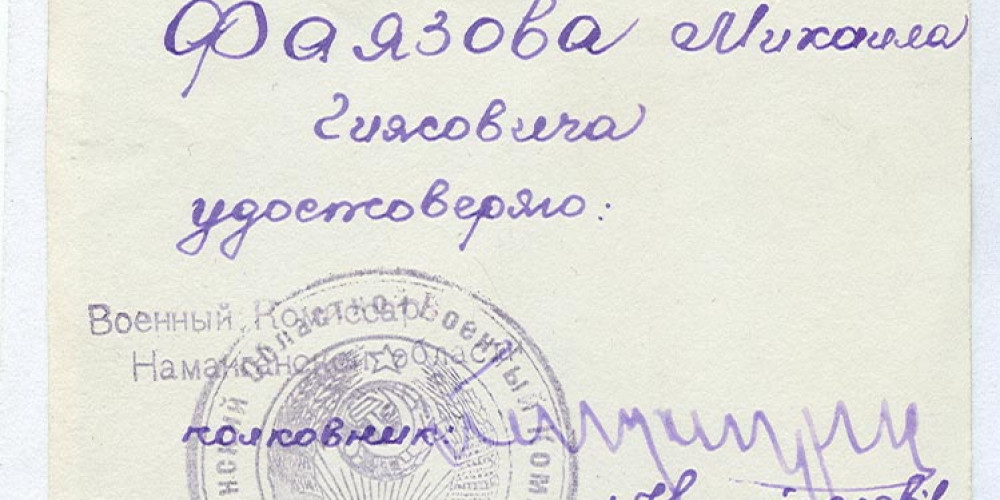 Фаязова Михаила
Гиясовича
удостоверяю:
Военный Комиссар
Наманганской области
полковник:
областной Военный Ком